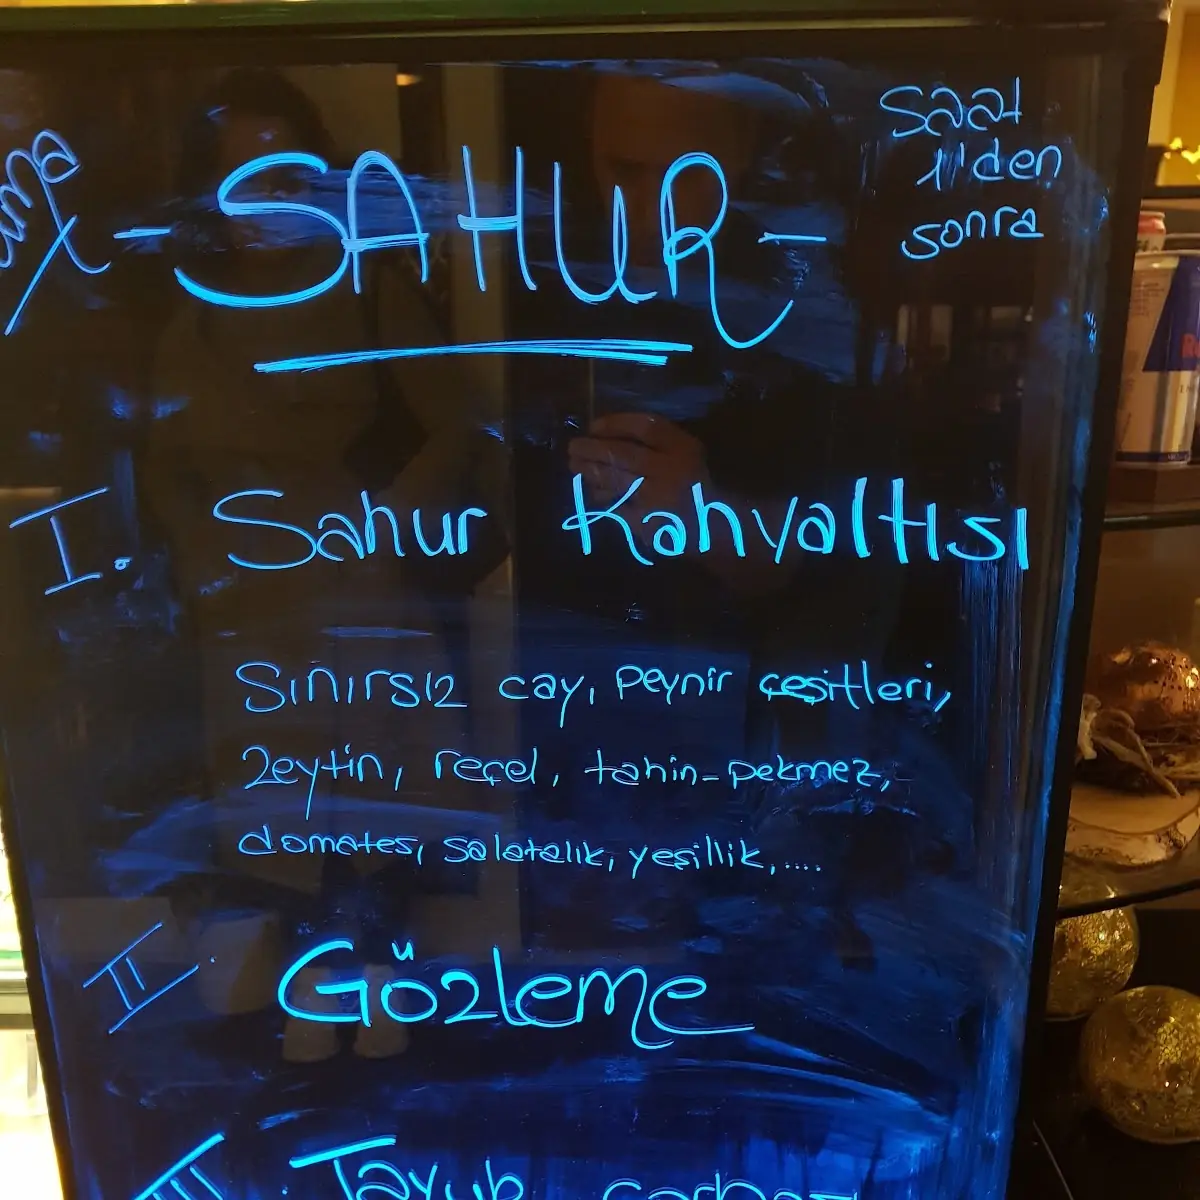 saat
1'den
sonra
-SAHUR-
I. Sahur Kahvaltısı
Sınırsız cay, peynir çeşitleri,
zeytin, reçel, tahin-pekmez,
domates, salatalık, yeşillik,....
II. Gözleme
III. Tavuk